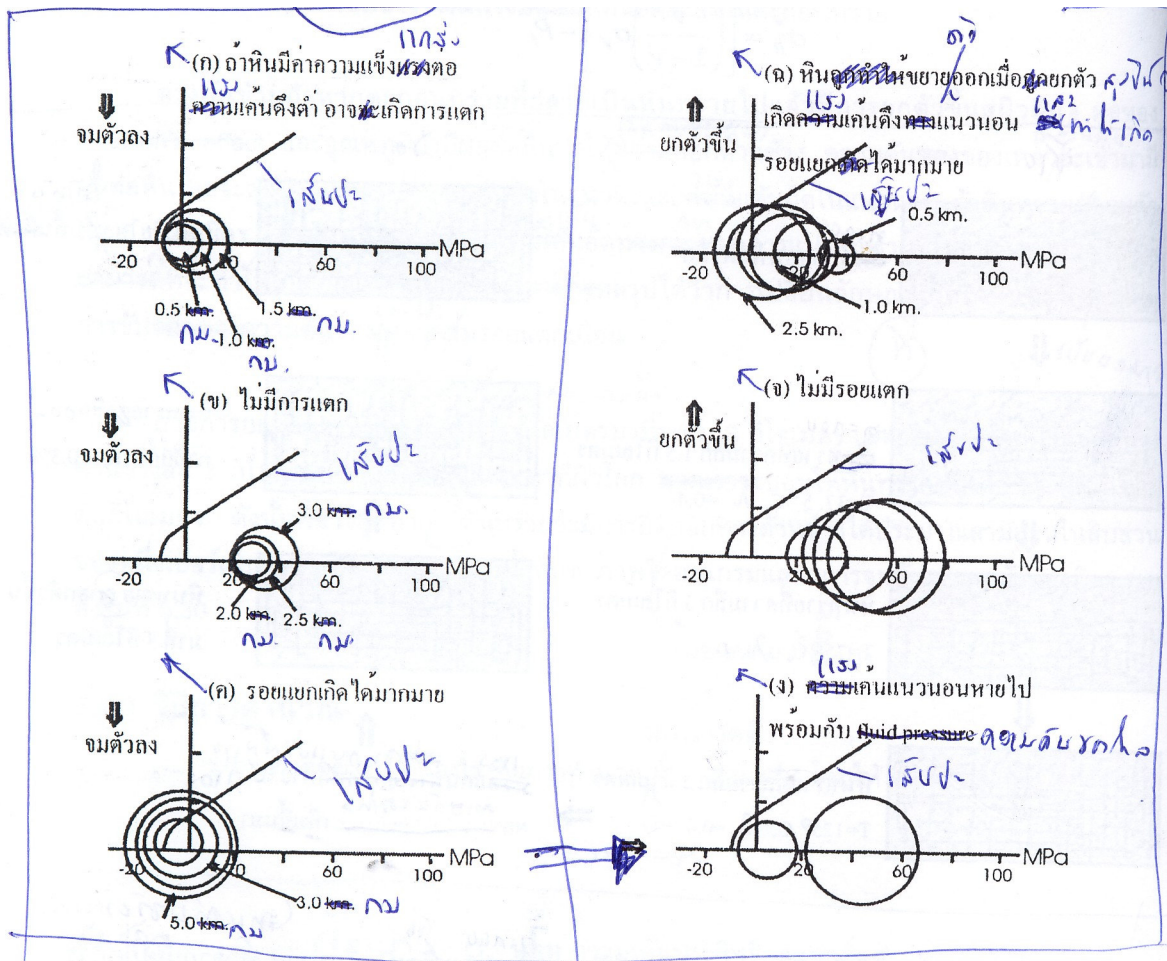 แกร่ง
(ก) ถ้าหินมีค่าความแข็งแรงต่อ
แรง
ความเค้นดึงต่ำ อาจจะเกิดการแตก
จมตัวลง
เส้นปะ
-20 20 60 100 MPa
0.5 km. 1.5 km. กม.
กม. 1.0 km.
กม.
(ข) ไม่มีการแตก
จมตัวลง
เส้นปะ
3.0 km. กม.
-20 20 60 100 MPa
2.0 km. 2.5 km.
กม. กม.
(ค) รอยแยกเกิดได้มากมาย
จมตัวลง
เส้นปะ
-20 20 60 100 MPa
3.0 km. กม
5.0 km. กม
ตัว
(ฉ) หินถูกทำให้ขยายออกเมื่อถูกยกตัว สูงขึ้น
แรง และ
เกิดความเค้นดึงทางแนวนอน ทำให้เกิด
ยกตัวขึ้น
รอยแยกตัดได้มากมาย
เส้นปะ
0.5 km.
-20 20 60 100 MPa
1.0 km.
2.5 km.
(จ) ไม่มีรอยแตก
ยกตัวขึ้น
เส้นปะ
-20 20 60 100 MPa
แรง
(ง) ความเค้นแนวนอนหายไป
พร้อมกับ fluid pressure ความดันของไหล
เส้นปะ
-20 20 60 100 MPa